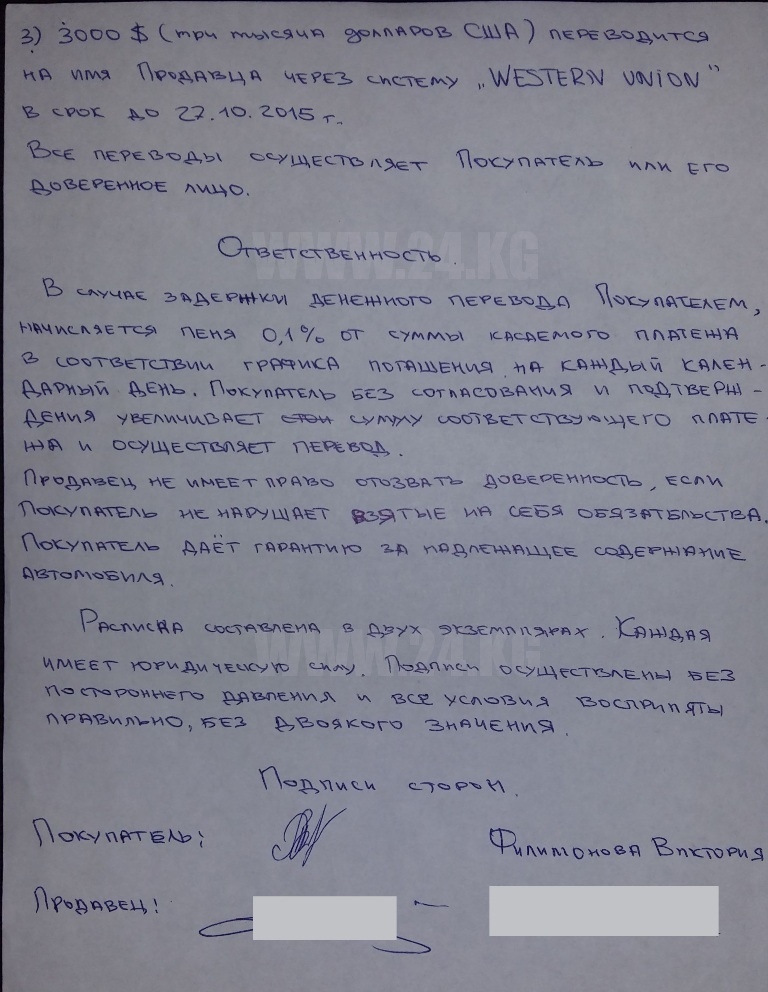 3) 3000 $ (три тысяча долларов США) переводится
на имя Продавца через систему „WESTERN UNION”
в срок до 27.10.2015 г.
Все переводы осуществляет Покупатель или его
доверенное лицо.
Ответственность.
WWW.24.KG
В случае задержки денежного перевода Покупателем,
начисляется пеня 0,1% от суммы касаемого платежа
в соответствии графика погашения на каждый кален-
дарный день. Покупатель без согласования и подтверж-
дения увеличивает сумму соответствующего плате-
жа и осуществляет перевод.
Продавец не имеет право отозвать доверенность, если
Покупатель не нарушает взятые на себя обязательства.
Покупатель даёт гарантию за надлежащее содержание
автомобиля.
Расписка составлена в двух экземплярах. Каждая
WWW.24.KG
имеет юридическую силу. Подписи осуществлены без
постороннего давления и все условия восприняты
правильно, без двоякого значения.
Подписи сторон.
Покупатель: Филимонова Виктория
Продавец: